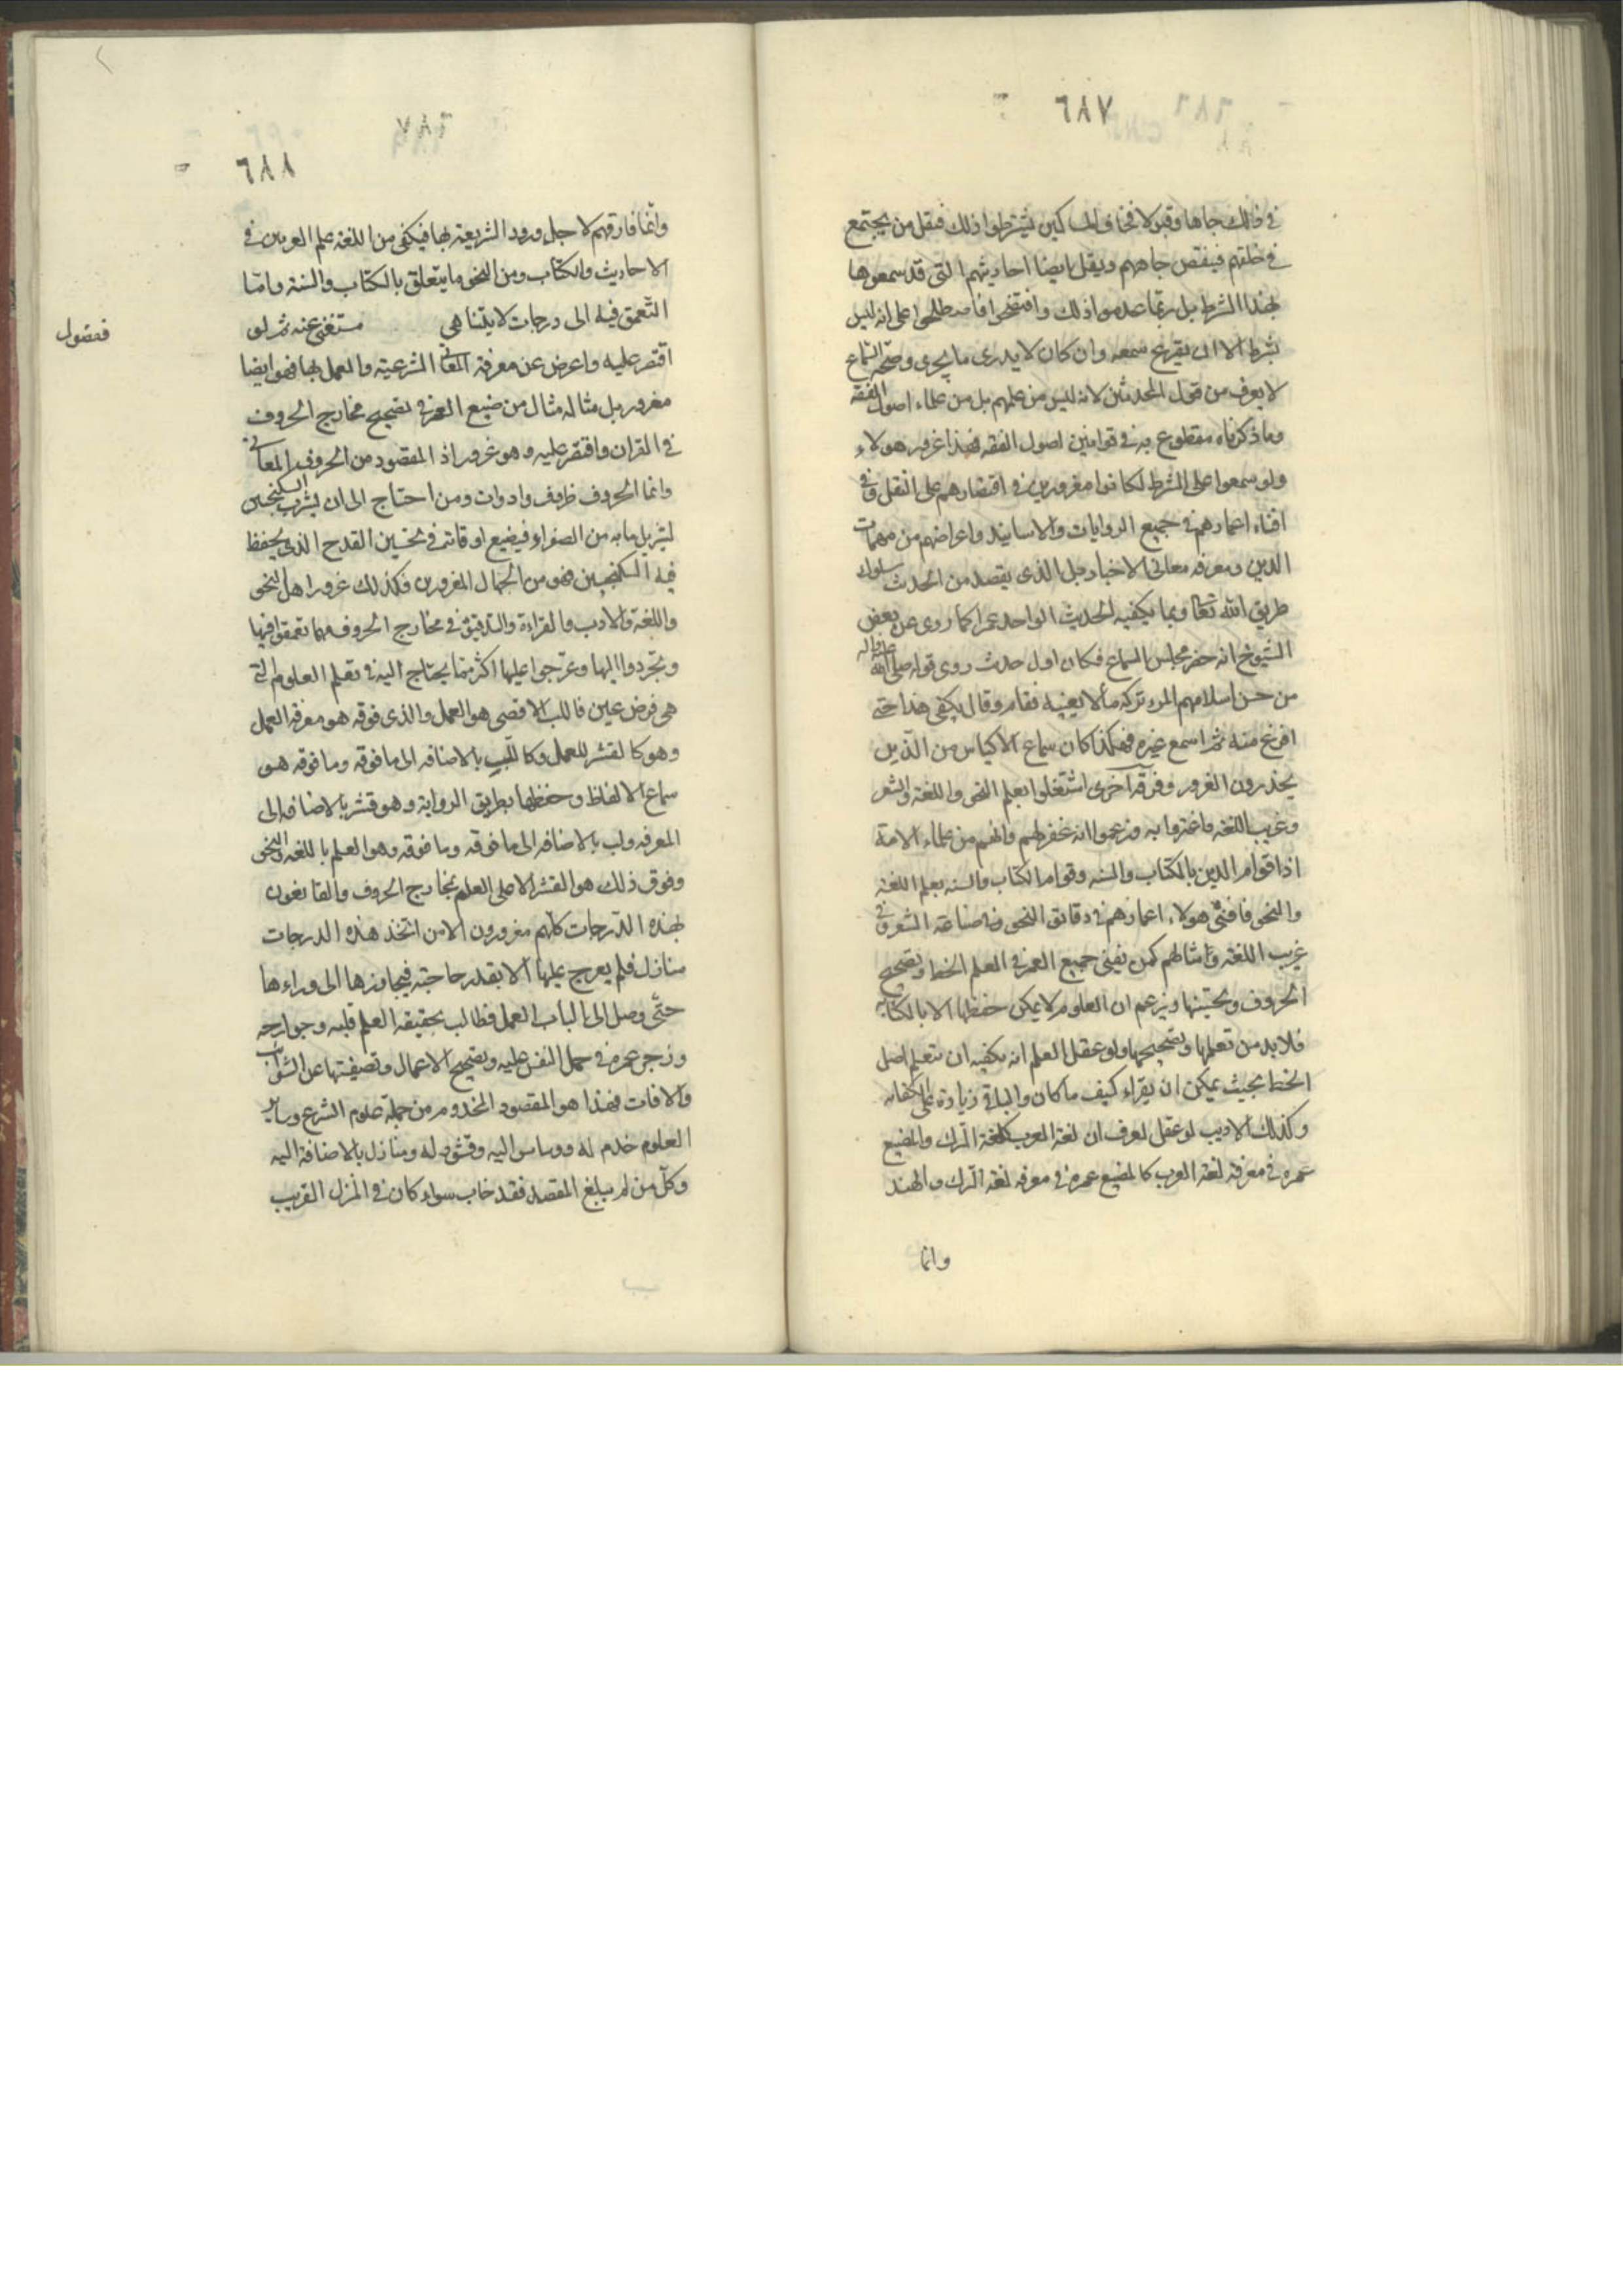 ٦٨٧
في ذلك جاها وقبولا فخاف المساكين ان يشترطوا ذلك فيقل من يجتمع
في حلقتهم فينقص جاههم ويقل ايضا احاديثهم التي قد سمعوها
بهذا الشرط بل ربما عدموا ذلك وافتضحوا فاصطلحوا على انه ليس
بشرط الا ان يقرع سمعه وان كان لا يدري ما يجري وصحة السماع
لا يعرف من قول المحدثين لانه ليس من علمهم بل من علماء اصول الفقه
وما ذكرناه مقطوع به في قوانين اصول الفقه فهذا غرور هولاء
ولو سمعوا على الشرط لكانوا مغرورين في اقتصارهم على النقل وفي
افناء اعمارهم في جميع الروايات والاسانيد واعراضهم من مهمات
الدين ومعرفة معاني الاخبار بل الذي يقصد من الحديث سلوك
طريق الله تعا وبما يكفيه الحديث الواحد عمرا كما روى عن بعض
الشيوخ انه حضر مجلس السماع فكان اول حدث روى قوله صلى الله عليه واله
من حسن اسلامهم المرء تركه مألا يعنيه فقام وقال يكفي هذا حتى
افرغ منه ثم اسمع غيره فهكذا كان سماع الاكياس من الذين
يحذرون الغرور وفرقة آخرى اشتغلوا بعلم النحو واللغة والشعر
وغريب اللغة واغتروا به وزعموا انه غفر لهم وانهم من علماء الامة
اذا قوام الدين بالكتاب والسنه وقوام الكتاب والسنه بعلم اللغة
والنحو فافنى هولاء اعمارهم في دقائق النحو وفي صناعة الشعر وفي
غريب اللغة وامثالهم كمن يفني جميع العمر في العلم الخط وتصحيح
الحروف وتحسينها ويزعم ان العلوم لا يمكن حفظها الا بالكتابه
فلا بد من تعلمها وتصحيحها ولو عقل العلم انه يكفيه ان يتعلم اصل
الخط بحيث يمكن ان يقراء كيف ما كان والباقي زيادة على الكفايه
وكذلك الاديب لو عقل لعرف ان لغة العرب كلغة الترك والمضيع
عمره في معرفة لغة العرب كالمضيع عمره في معرفه لغة الترك والهند
وانما
٦٨٨
وانما فارقهم لاجل ورود الشريعة بها فيكفي من اللغة علم الغريبين في
الاحاديث والكتاب ومن النحو ما يتعلق بالكتاب والسنة واما
التعمق فيه الى درجات لا يتناهى مستغنى عنه ثم لو
ففضول
اقتصر عليه واعرض عن معرفة المعاني الشرعية والعمل بها فهو ايضا
مغرور بل مثاله مثال من ضيع العمر في تصحيح مخارج الحروف
في القران واقتصر عليه وهو غرور اذ المقصود من الحروف المعاني
وانما الحروف ظروف وادوات ومن احتاج الى ان يشرب السكنجبين
ليزيل ما به من الصفراء فيضيع اوقاته في تحسين القدح الذي يحفظ
فيه السكنجبين فهو من الجهال المغرورين فكذلك غرور اهل النحو
واللغة والادب والقراءة والتدقيق في مخارج الحروف مهما تعمقوا فيها
وتجردوا اليها وعرجوا عليها اكثر مما يحتاج اليه في تعلم العلوم التي
هي فرض عين فاللب الاقصى هو العمل والذي فوقه هو معرفة العمل
وهو كالقشر للعمل وكاللب بالاضافه الى ما فوقه وما فوقه هو
سماع الالفاظ وحفظها بطريق الرواية وهو قشر بالاضافه الى
المعرفه ولب بالاضافه الى ما فوقه وما فوقه وهو العلم باللغه والنحو
وفوق ذلك هو القشر الاعلى العلم بمخارج الحروف والقانعون
بهذه الدرجات كلهم مغرورون الا من اتخذ هذه الدرجات
منازل فلم يعرج عليها الا بقدر حاجته فيجاوزها الى وراءها
حتى وصل الى الباب العمل فطالب بحقيقه العلم قلبه وجوارحه
وزجر عمره في حمل النفس عليه وتصحيح الاعمال وتصفيتها عن الشوائب
والافات فهذا هو المقصود المخدوم من جملة علوم الشرع وساير
العلوم خدم له ووساس اليه وقشور له ومنازل بالاضافة اليه
وكل من لم يبلغ المقصد فقد خاب سواء كان في المنزل القريب